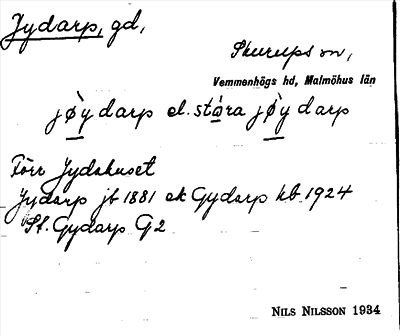 Jydarp, gd,
Skurups sn,
Vemmenhögs hd, Malmöhus län
jø̀ydarp el. stóra jø̀ydarp
Förr Jydahuset
Jydarp jb 1881 ek Gydarp kb 1924
St. Gydarp G2
NILS NILSSON 1934